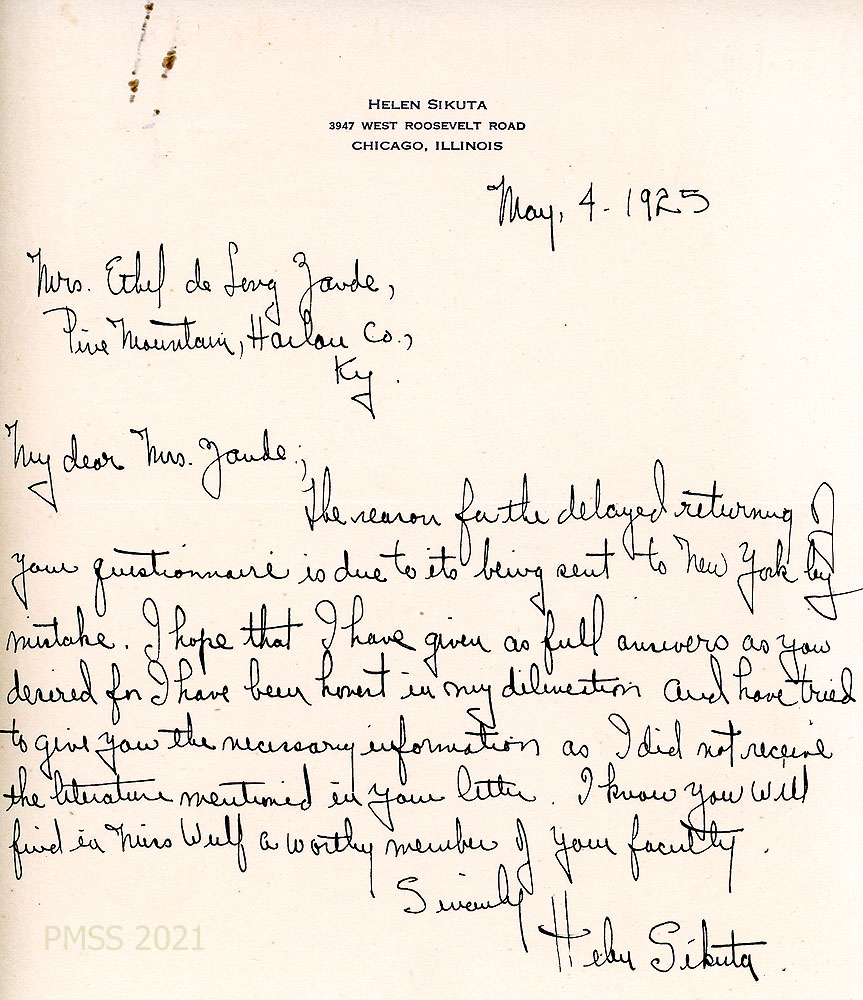 HELEN SIKUTA
3947 WEST ROOSEVELT ROAD
CHICAGO, ILLINOIS
May, 4 - 1925
Mrs. Ethel de Long Zande,
Pine Mountain, Harlan Co.,
Ky.
My dear Mrs. Zande;
The reason for the delayed returning of
your questionnaire is due to its being sent to New York by
mistake. I hope that I have given as full answers as you
desired for I have been honest in my delineation and have tried
to give you the necessary information as I did not receive
the literature mentioned in your letter. I know you will
find in Miss Wulf a worthy member of your faculty.
Sincerely
Helen Sikuta.
PMSS 2021